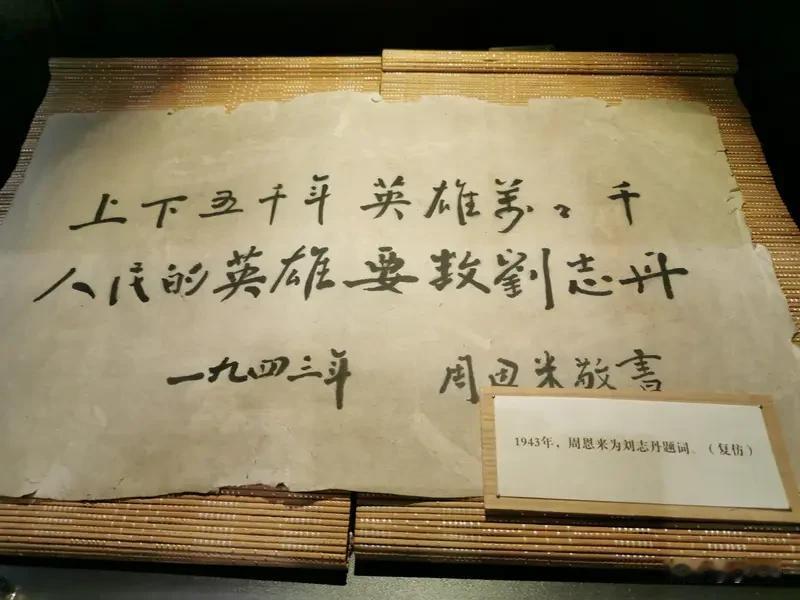 上下五千年 英雄萬々千
人民的英雄要数劉志丹
一九四三年 周恩来敬書
1943年，周恩来为刘志丹题词。（复仿）